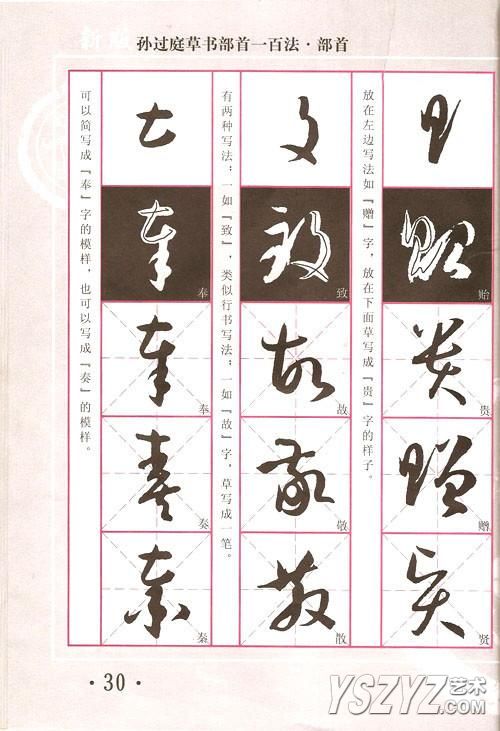 新版
孙过庭草书部首一百法·部首
贻
贵
赠
贤
放在左边写法如『赠』字，放在下面草写成『贵』字的样子。
致
故
敬
散
有两种写法：一如『致』，类似行书写法；一如『故』字，草写成一笔。
奉
奉
奏
秦
可以简写成『奉』字的模样，也可以写成『奏』的模样。
·30·
YSZYZ艺术.COM